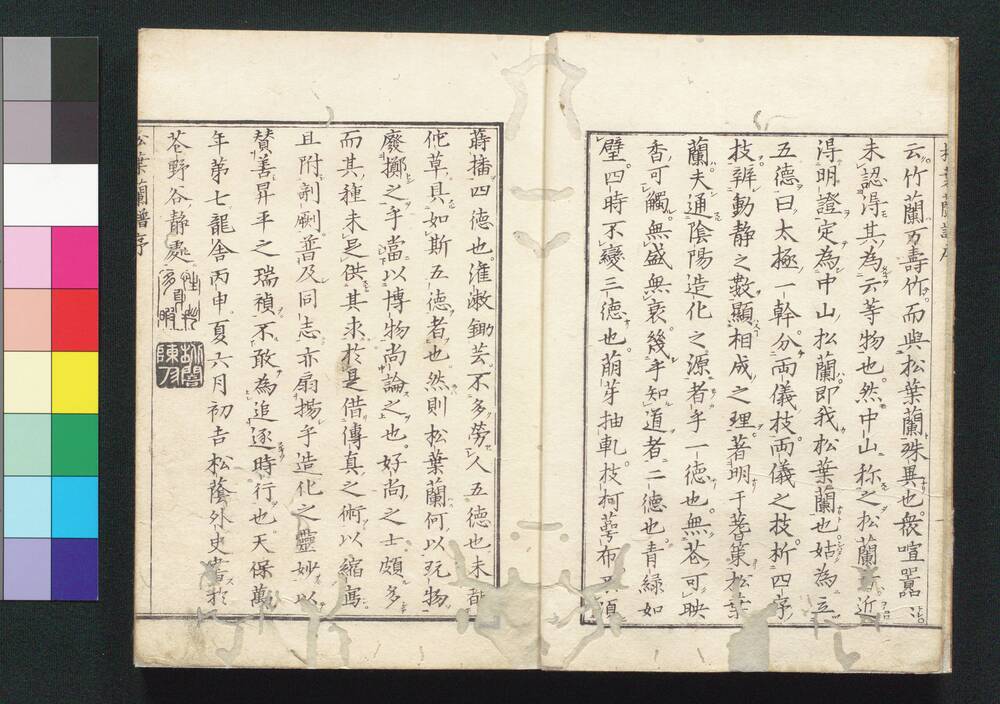 云竹蘭万壽竹而與松葉蘭殊異也衆喧囂々
未認得其為云等物也然中山称之松蘭近
得明證定為中山松蘭即我松葉蘭也姑為立
五德曰太極一幹分両儀技両儀之技析四序
技辨動静之數顯相成之理著明于蓍策松葉
蘭夫通陰陽造化之源者乎一德也無花可映
香可觸無盛無衰幾乎知道者二德也青緑如
壁四時不變三德也萌芽抽軋枝柯萼布
蒔播四德也灌漱鋤芸不多勞人五德也未
佗草具如斯五德者也然則松葉蘭何以玩物
廢擲之乎當以博物尚論之也好尚之士頗多
而其種未足供其求於是借傳真之術以縮寫
且附剞劂普及同志亦扇揚乎造化之靈妙以
賛善昇平之瑞禎不敢為追逐時行也天保萬
年第七龍舎丙申夏六月初吉松蔭外史書於
苍野谷静處
松葉蘭譜序